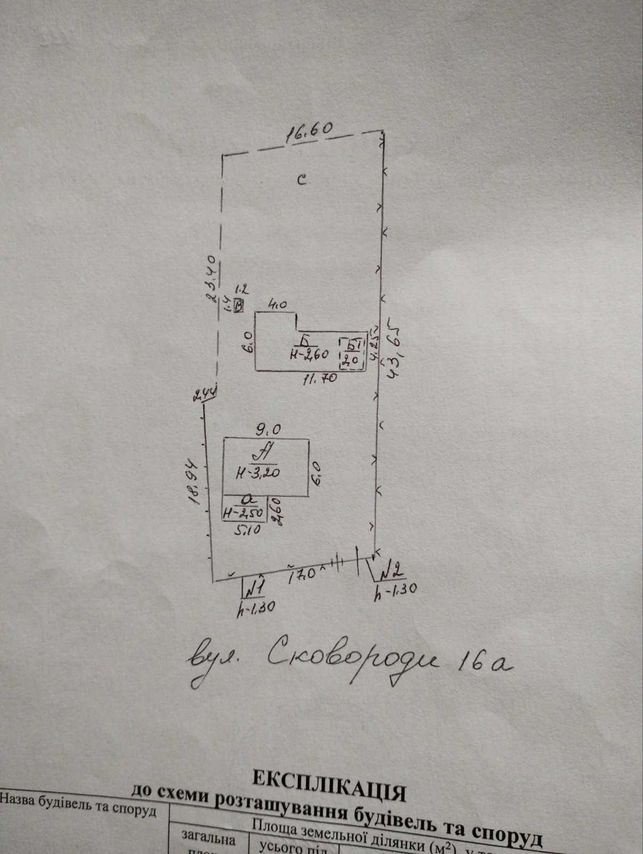 16.60
С
23.40
1.2
1.4
В
4.0
6.0
Б
Н-2,60
Б1
2,0
4.25
43,65
11.70
2,44
9.0
А
Н-3,20
6,0
18,94
а
Н-2,50
2,60
5,10
17,0
N1
h-1.30
N2
h-1.30
вул. Сковороди 16а
ЕКСПЛІКАЦІЯ
до схеми розташування будівель та споруд
Назва будівель та споруд
Площа земельної ділянки (м²)
загальна
усього під